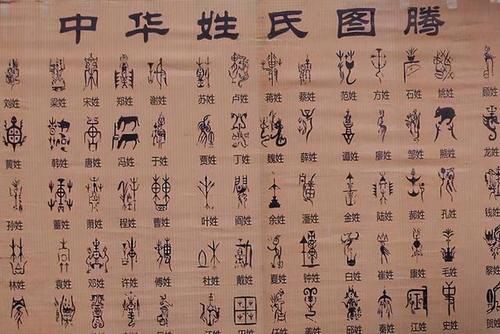 中华姓氏图腾
刘姓 梁姓 宋姓 郑姓 谢姓 苏姓 卢姓 蒋姓 蔡姓 范姓 方姓 石姓 姚姓 顾姓
黄姓 韩姓 唐姓 冯姓 于姓 贾姓 丁姓 魏姓 薛姓 谭姓 廖姓 邹姓 熊姓 龙姓
孙姓 董姓 萧姓 程姓 曹姓 叶姓 阎姓 余姓 潘姓 金姓 陆姓 郝姓 孔姓 钱姓
林姓 袁姓 邓姓 许姓 傅姓 杜姓 戴姓 夏姓 钟姓 白姓 崔姓 康姓 毛姓
江姓 史姓